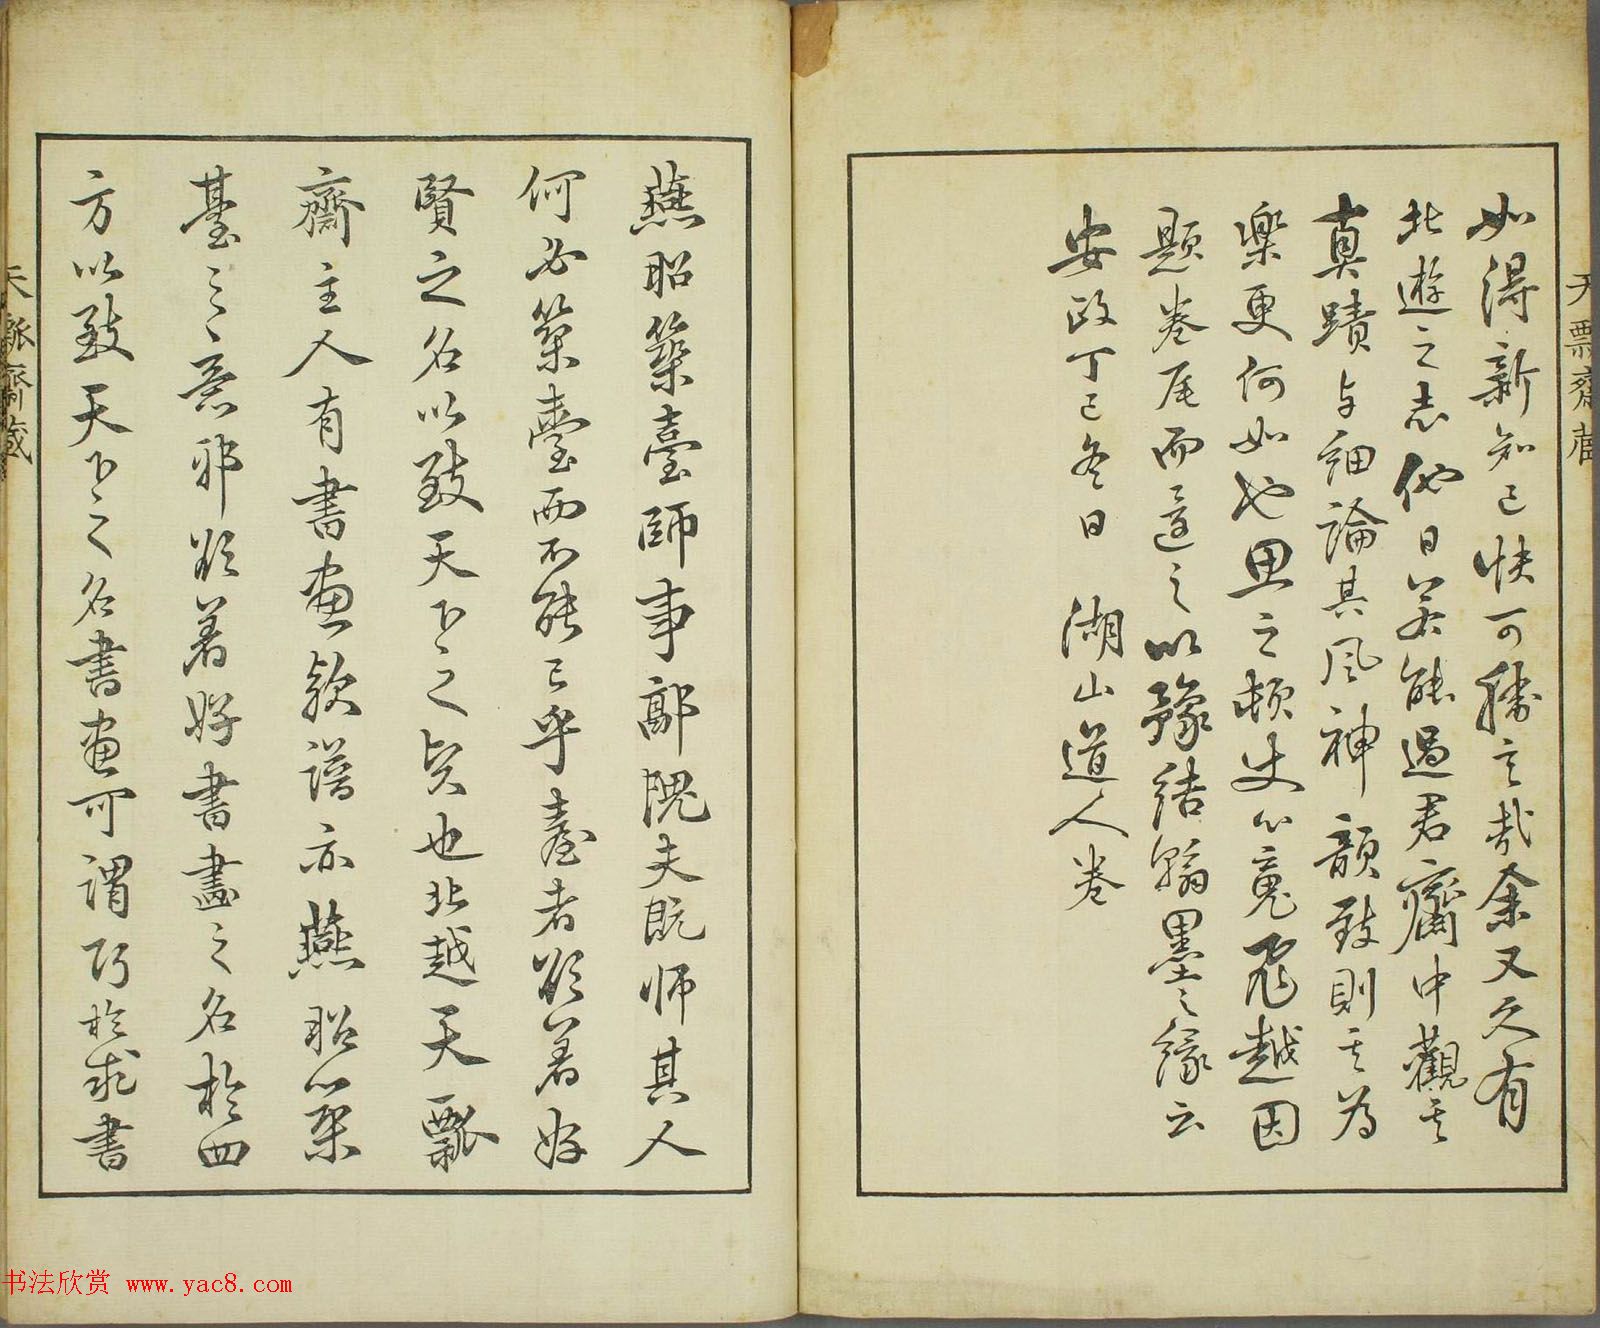 天瓢齋藏
如得新知已快可勝言哉余又久有
北遊之志他日若能過君齋中觀其
真蹟与細論其風神韻致則其為
樂更何如也思之頓生心魂飛越因
題卷尾而還之以豫結翰墨之緣云
安政丁巳冬日 湖山道人卷
燕昭築臺師事郭隗夫既師其人
何必築臺而不能已乎臺者欲著好
賢之名以致天下之賢也北越天瓢
齋主人有書畫款譜亦燕昭築
臺之意邪欲著好書畫之名於四
方以致天下之名書畫可謂巧於求書
天瓢齋藏
书法欣赏 www.yac8.com